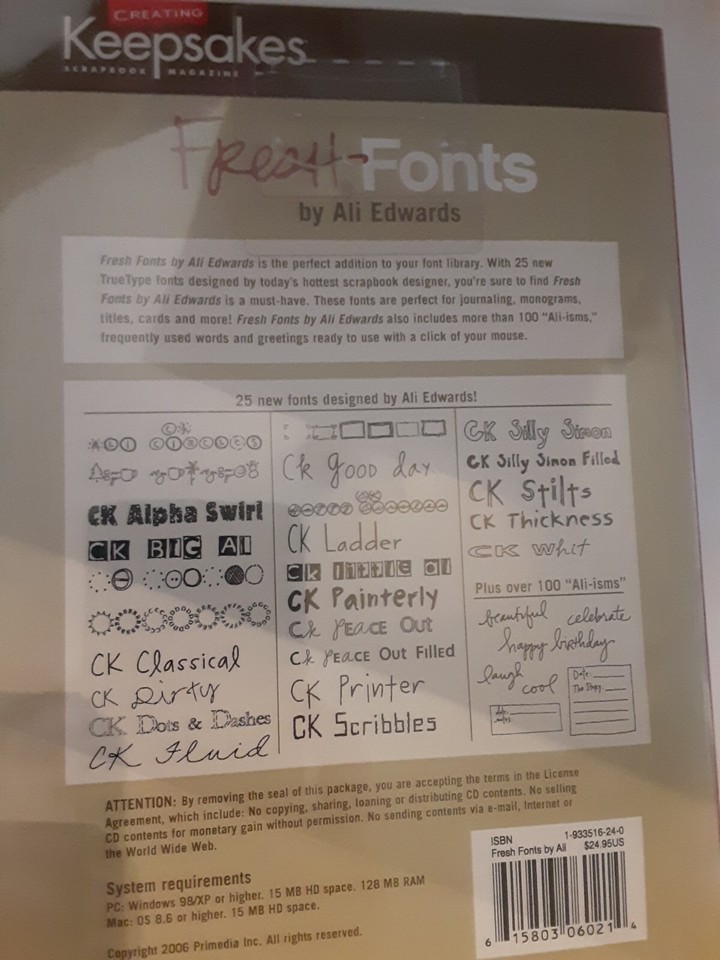 CREATING
Keepsakes
SCRAPBOOK MAGAZINE
Fresh Fonts
by Ali Edwards
Fresh Fonts by Ali Edwards is the perfect addition to your font library. With 25 new
TrueType fonts designed by today's hottest scrapbook designer, you're sure to find Fresh
Fonts by Ali Edwards is a must-have. These fonts are perfect for journaling, monograms,
titles, cards and more! Fresh Fonts by Ali Edwards also includes more than 100 "Ali-isms,"
frequently used words and greetings ready to use with a click of your mouse.
25 new fonts designed by Ali Edwards!
CK
ALI CIRCLES
CK Alpha Swirl
CK BIG ALI
CK Classical
CK Dirty
CK Dots & Dashes
CK Fluid
CK good day
CK
CK Ladder
CK little ali
CK Painterly
CK PEACE Out
CK PEACE Out Filled
CK Printer
CK Scribbles
CK Silly Simon
CK Silly Simon Filled
CK Stilts
CK Thickness
CK Whit
Plus over 100 "Ali-isms"
beautiful celebrate
happy birthday
laugh
cool
Date:
The Story:
date:
notes:
ATTENTION: By removing the seal of this package, you are accepting the terms in the License
Agreement, which include: No copying, sharing, loaning or distributing CD contents. No selling
CD contents for monetary gain without permission. No sending contents via e-mail, Internet or
the World Wide Web.
System requirements
PC: Windows 98/XP or higher. 15 MB HD space. 128 MB RAM
Mac: OS 8.6 or higher. 15 MB HD space.
Copyright 2006 Primedia Inc. All rights reserved.
ISBN 1-933516-24-0
Fresh Fonts by Ali $24.95US
6 15803 06021 4